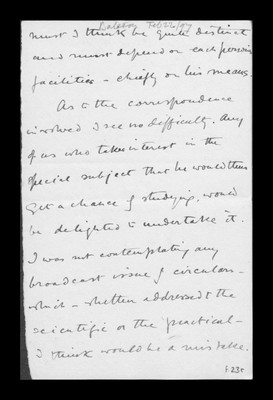 Bateson Feb 26/04
must I think be quite distinct
and must depend on each person's
facilities – chiefly on his means.
As to the correspondence
involved I see no difficulty. Any
of us who takes interest in the
special subject that he would thus
get a chance of studying, would
be delighted to undertake it.
I was not contemplating any
broadcast issue of circulars –
which – whether addressed to the
scientific or the practical –
I think would be a mistake.